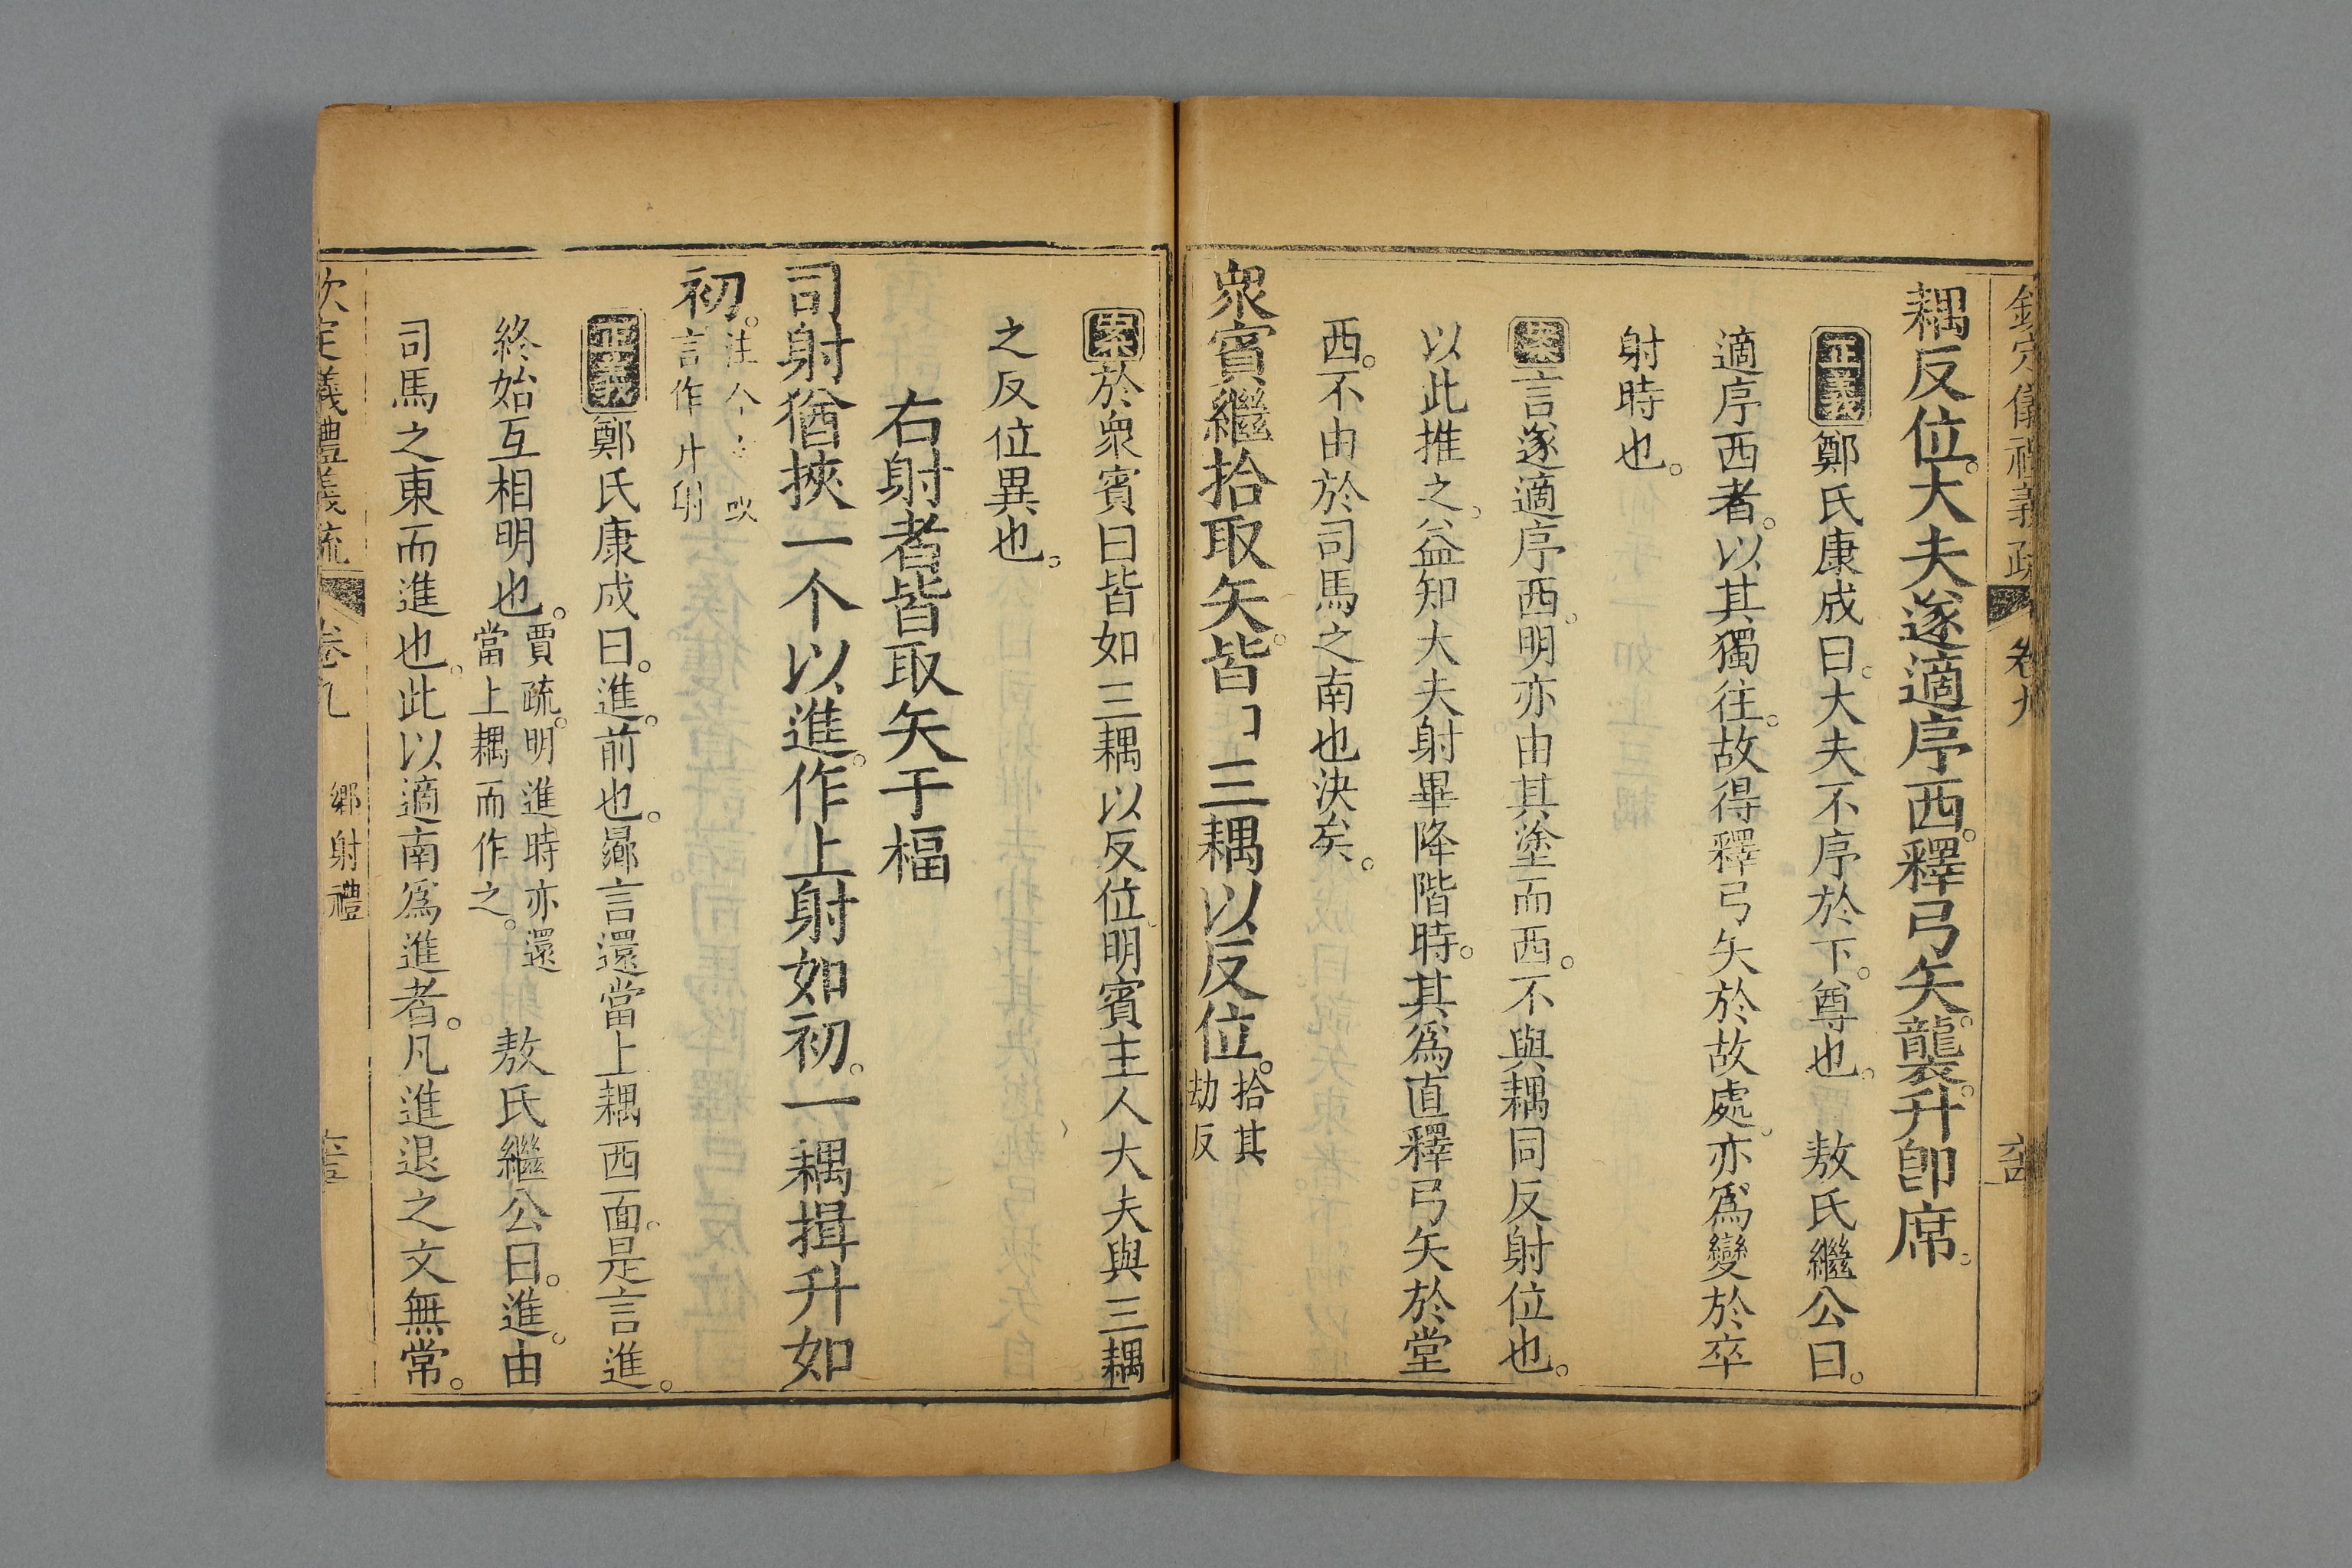 欽定儀禮義疏 卷九
耦反位。大夫遂適序西。釋弓矢。襲。升卽席。
正義鄭氏康成曰。大夫不序於下。尊也。 敖氏繼公曰。
適序西者。以其獨往。故得釋弓矢於故處。亦爲變於卒
射時也。
案言遂適序西。明亦由其塗而西。不與耦同反射位也。
以此推之。益知大夫射畢降階時。其爲直釋弓矢於堂
西。不由於司馬之南也決矣。
衆賓繼拾取矢。皆 三耦以反位。拾其
劫反
案於衆賓曰皆如三耦以反位。明賓主人大夫與三耦
之反位異也。
右射者皆取矢于楅
司射猶挾一个以進。作上射如初。一耦揖升如
初。注 今
言作升射
正義鄭氏康成曰。進。前也。曏言還當上耦西面。是言進。
終始互相明也。賈疏。明進時亦還
當上耦而作之。 敖氏繼公曰。進。由
司馬之東而進也。此以適南爲進者。凡進退之文無常。
欽定儀禮義疏 卷九 鄉射禮